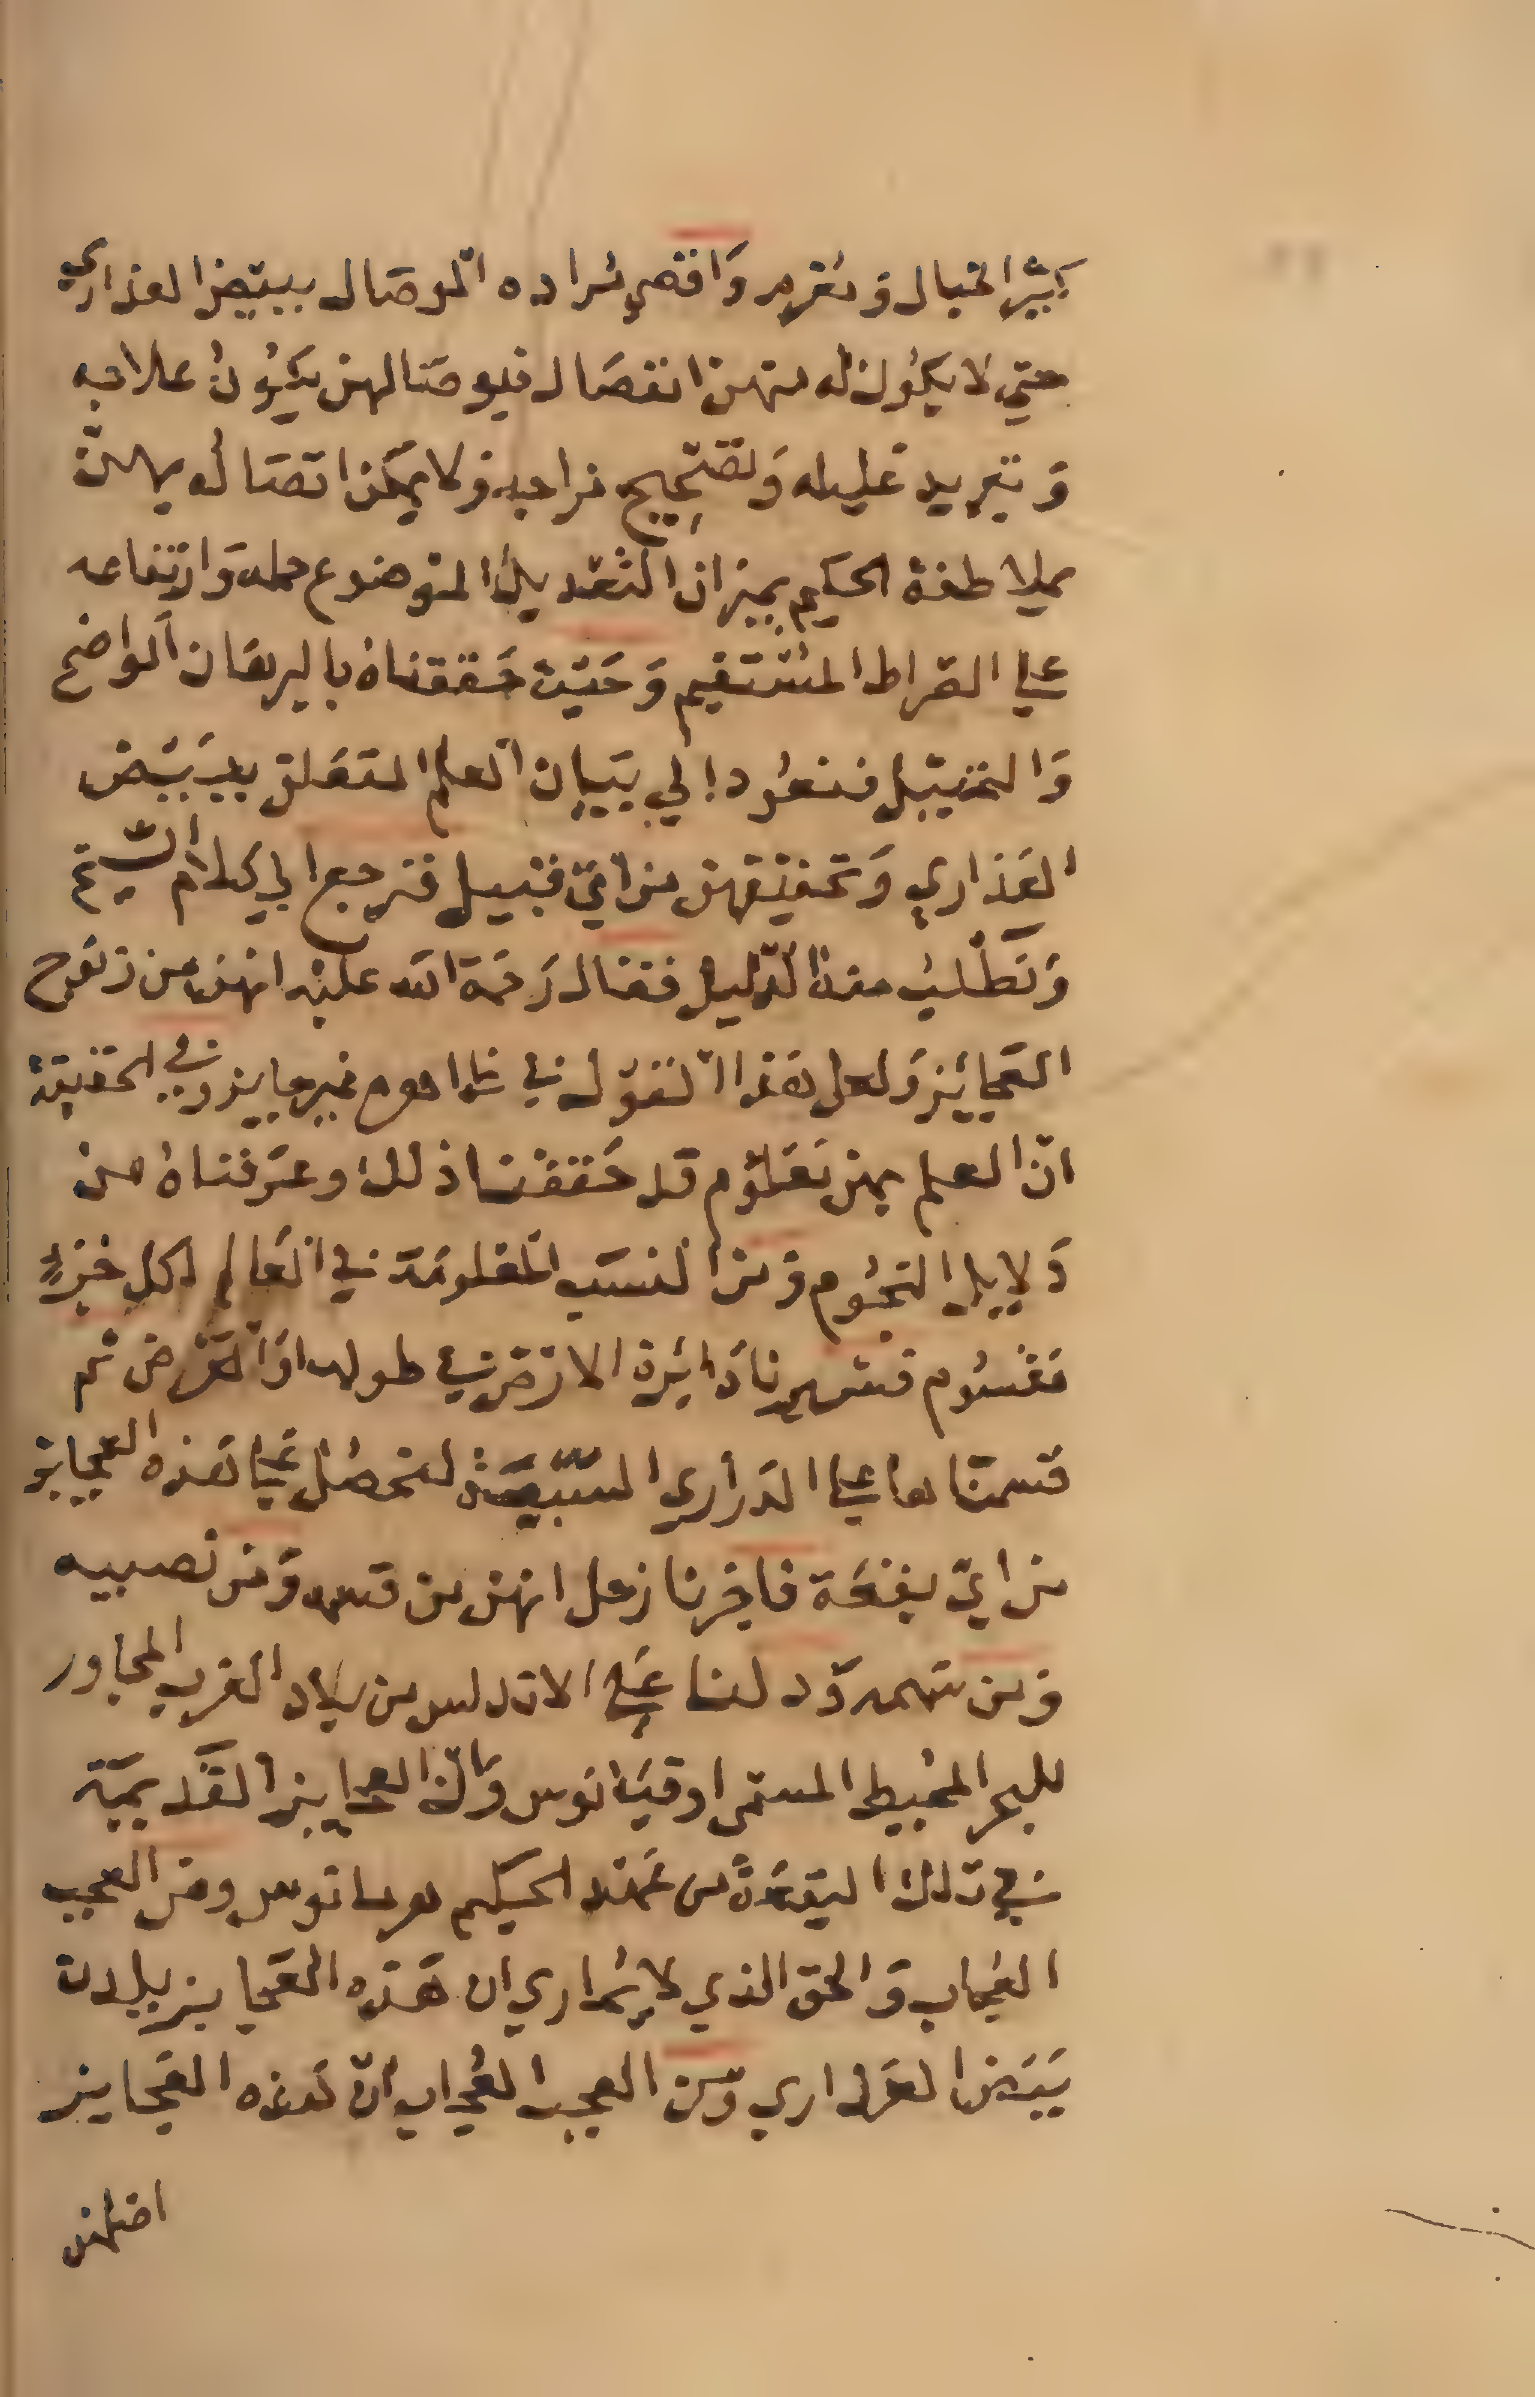 كثير الخيال ومغرم واقصي مراده الوصال ببيض العذاري
حتي لا يكون له منهن انفصال فبوصالهن يكون علاجه
وتبريد غليله وتصحيح مزاجه ولا يمكن اتصاله بهن
بملاطفة الحكيم بميزان التعديل الموضوع حمله وارتفاعه
علي الصراط المستقيم وحيث حققناه بالبرهان الواضح
والتمثيل فنعود الي بيان العلم المتعلق ببيض
العذاري وتحقيقهن من اي قبيل فنرجع الي كلام الشيخ
ونطلب منه الدليل فقال رحمة الله عليه انهن من زنوج
العجايز ولعل هذا القول في غير جايز وفي الحقيقة
ان العلم بهن معلوم قد حققنا ذلك وعرفناه من
دلايل النجوم ومن النسب المعلومة في العالم لكل جزء
مقسوم دائرة الارض في طولها والعرض ثم
قسمناها علي الدراري السبعة لنحصل علي هذه العجايز
من اي بقعة فاخبرنا زحل انهن من قسمه ومن نصيبه
ومن سهمه ود لنا علي الاندلس من بلاد الغرب المجاور
للبحر المحيط المسمي اوقيانوس وان العجايز القديمة
في تلك البقعة من عهد الحكيم ومن العجب
العجاب والحق الذي لا يماري ان هذه العجايز يلدن
بيض العذاري ومن العجب العجاب ان هذه العجايز
اصلهن